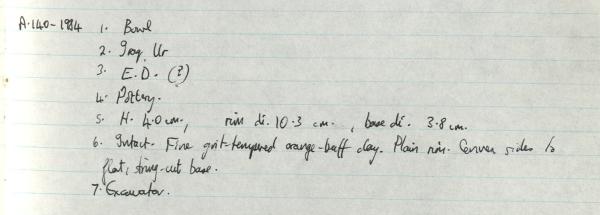 A.140-1984 1. Bowl
2. Iraq. Ur
3. E.D. (?)
4. Pottery.
5. H. 4.0 cm., rim di. 10.3 cm., base di. 3.8 cm.
6. Intact. Fine grit-tempered orange-buff clay. Plain rim. Convex sides to
flat, string-cut base.
7. Excavator.